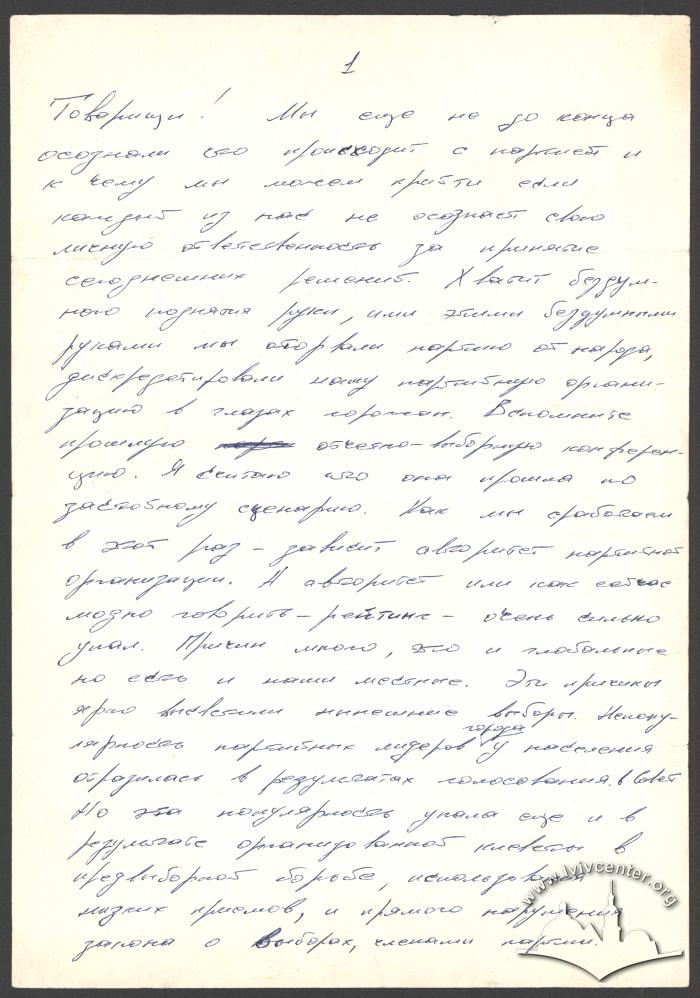 1
Товарищи! Мы еще не до конца
осознали что происходит с партией и
к чему мы можем прийти если
каждый из нас не осознает свою
личную ответственность за принятие
сегоднешних решений. Хватит бездум-
ного поднятия руки, ими этими бездумными
руками мы оторвали партию от народа,
дискредетировали нашу партийную органи-
зацию в глазах горожан. Вспомните
прошлую отчетно-выборную конферен-
цию. Я считаю что она прошла по
застойному сценарию. Как мы сработаем
в этот раз – зависит авторитет партийной
организации. А авторитет или как сейчас
модно говорить – рейтинг – очень сильно
упал. Причин много, это и глобальные
но есть и наши местные. Эти причины
ярко высветили нынешние выборы. Непопу-
лярность партийных лидеров города у населения
отразилась в результатах голосования в Совет
Но эта популярность упала еще и в
результате организованной клеветы в
предвыборной борьбе, использования
низких приемов, и прямого нарушения
закона о выборах, членами партии.
www.lvivcenter.org